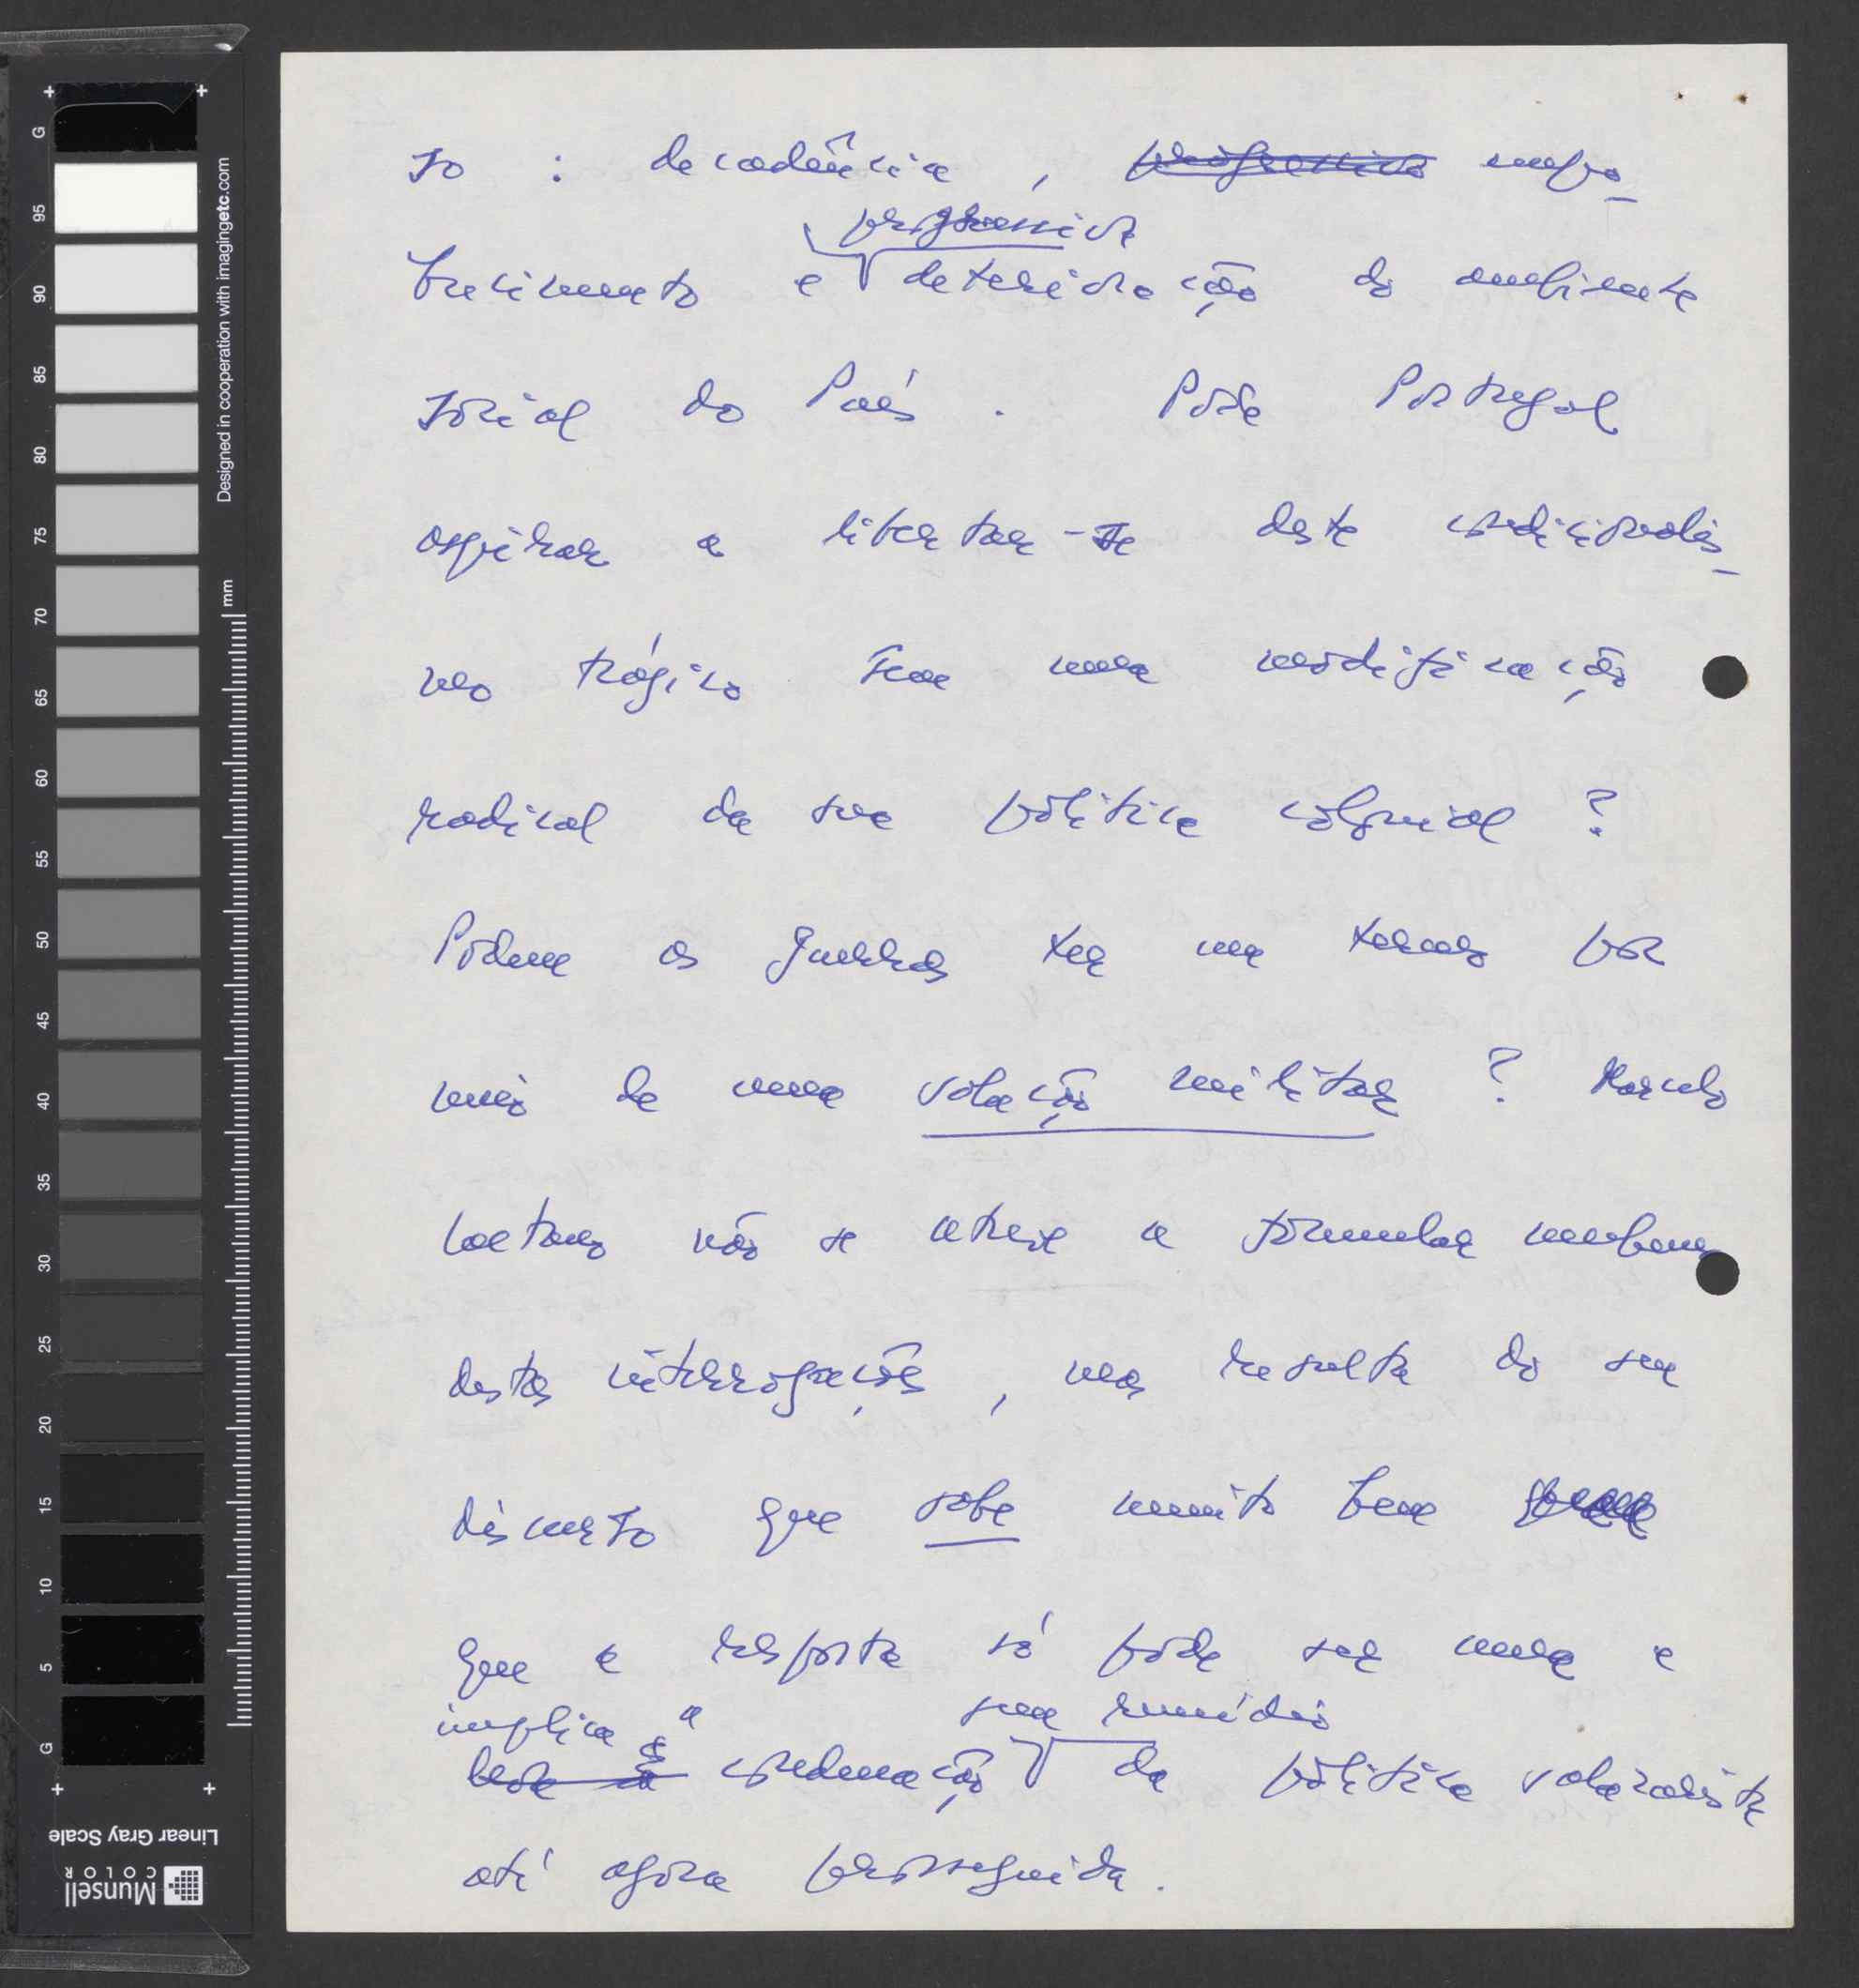 so : decadência , ~~progressiva~~ empo-
brecimento e progressiva deterioração do ambiente
social do País . Pode Portugal
aspirar a libertar-se deste condicionalis-
mo trágico sem uma modificação
radical da sua política colonial ?
Podem as guerras ter um termo por
meio de uma solução militar ? Marcelo
Caetano não se atreve a formular nenhuma
destas interrogações , mas resulta do seu
discurso que sabe muito bem
que a resposta só pode ser uma e
implica a sem remédio
condenação da política salazarista
até agora prosseguida .
G
95
90
85
80
75
70
65
60
55
50
45
40
35
30
25
20
15
10
5
G
Designed in cooperation with imagingetc.com
mm
Linear Gray Scale
Munsell
COLOR